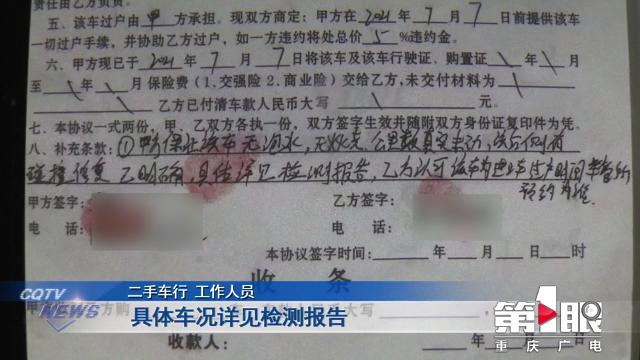 责任由乙方负责。
五、该车过户由甲方承担。现双方商定:甲方在2021年7月7日前提供该车
一切过户手续,并协助乙方过户,如一方违约将处总价5%违约金。
六、甲方现已于2021年7月7日将该车及该车行驶证、购置证\年\月
至\年\月保险费(1.交强险2.商业险)交给乙方,未交付材料为\
\乙方已付清车款人民币大写\元。
七、本协议一式两份,甲、乙双方各执一份,双方签字生效并随附双方身份证复印件为凭。
八、补充条款:①甲方保证该车无泡水,无火烧,公里数真实
碰撞修复 乙明确,具体详见检测报告,乙方认可该车 过户时间
预约为准
甲方签字: 乙方签字:
电 话: 电 话:
本协议签字时间: 年 月 日 时
收 条
人民币大写
收款人: 年 月
CQTV
NEWS
二手车行 工作人员
具体车况详见检测报告
第1眼
重庆广电